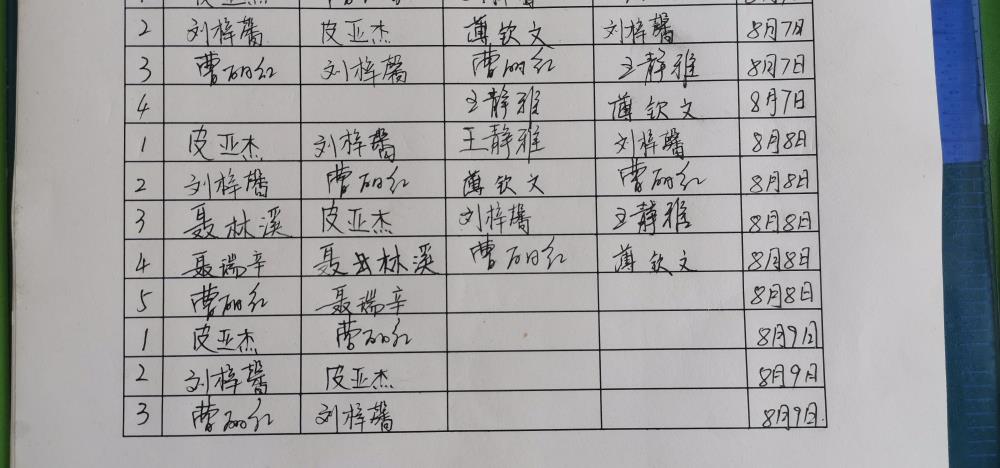 2 刘梓馨 皮亚杰 薄钦文 刘梓馨 8月7日
3 曹丽红 刘梓馨 曹丽红 王静雅 8月7日
4 王静雅 薄钦文 8月7日
1 皮亚杰 刘梓馨 王静雅 刘梓馨 8月8日
2 刘梓馨 曹丽红 薄钦文 曹丽红 8月8日
3 聂林溪 皮亚杰 刘梓馨 王静雅 8月8日
4 聂瑞辛 聂林溪 曹丽红 薄钦文 8月8日
5 曹丽红 聂瑞辛 8月8日
1 皮亚杰 曹丽红 8月9日
2 刘梓馨 皮亚杰 8月9日
3 曹丽红 刘梓馨 8月9日.